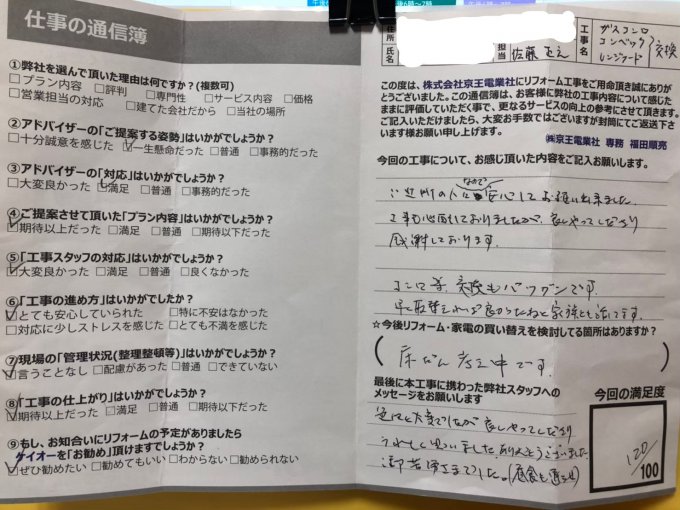 仕事の通信簿
①弊社を選んで頂いた理由は何ですか?(複数可)
□プラン内容 □評判 □専門性 □サービス内容 □価格
□営業担当の対応 □建てた会社だから □当社の場所
②アドバイザーの「ご提案する姿勢」はいかがでしょうか?
□十分誠意を感じた □一生懸命だった □普通 □事務的だった
③アドバイザーの「対応」はいかがでしょうか?
□大変良かった □満足 □普通 □事務的だった
④ご提案させて頂いた「プラン内容」はいかがでしょうか?
□期待以上だった □満足 □普通 □期待以下だった
⑤「工事スタッフの対応」はいかがでしょうか?
□大変良かった □満足 □普通 □良くなかった
⑥「工事の進め方」はいかがでしたか?
□とても安心していられた □特に不安はなかった
□対応に少しストレスを感じた □とても不満を感じた
⑦現場の「管理状況(整理整頓等)」はいかがでしょうか?
□言うことなし □配慮があった □普通 □できていない
⑧「工事の仕上がり」はいかがでしょうか?
□期待以上だった □満足 □普通 □期待以下だった
⑨もし、お知合いにリフォームの予定がありましたら
ケイオーを「お勧め」頂けますでしょうか?
□ぜひ勧めたい □勧めてもいい □わからない □勧められない
住所
氏名
担当
佐藤
工事名
ガスコンロ
コンベック
レンジフード
交換
この度は、株式会社京王電業社にリフォーム工事をご用命頂き誠にありが
とうございました。この通信簿は、お客様に弊社の工事内容について感じた
ままに評価していただく事で、更なるサービスの向上の参考にさせて頂きます。
ご記入いただけましたら、大変お手数ではございますが封筒にてご返送下さ
います様お願い申し上げます。
㈱京王電業社 専務 福田順亮
今回の工事について、お感じ頂いた内容をご記入お願いします。
ご近所の人 なので 安心してお願い出来ました
工事も心配しておりましたが、良くやって下さり
感謝しております。
コンロ等 交換もバツグンです
早く取替えれば良かったねと家族とも話してます。
☆今後リフォーム・家電の買い替えを検討してる箇所はありますか?
(床なん考え中です。)
最後に本工事に携わった弊社スタッフへの
メッセージをお願いします
大変でしたが良くやって下さり
うれしく思いました ありがとうございました
御苦労さまでした。
今回の満足度
120
/100